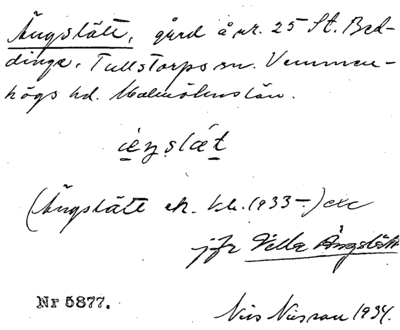 Ängslätt, gård å nr. 25 St. Bed-
dinge, Tullstorps sn. Vemmen-
högs hd. Malmöhus län.
(Ängslätt ek. kb. (1933–) etc
jfr Villa Ängslätt
Nr 5877.
Nils Nilsson 1934.